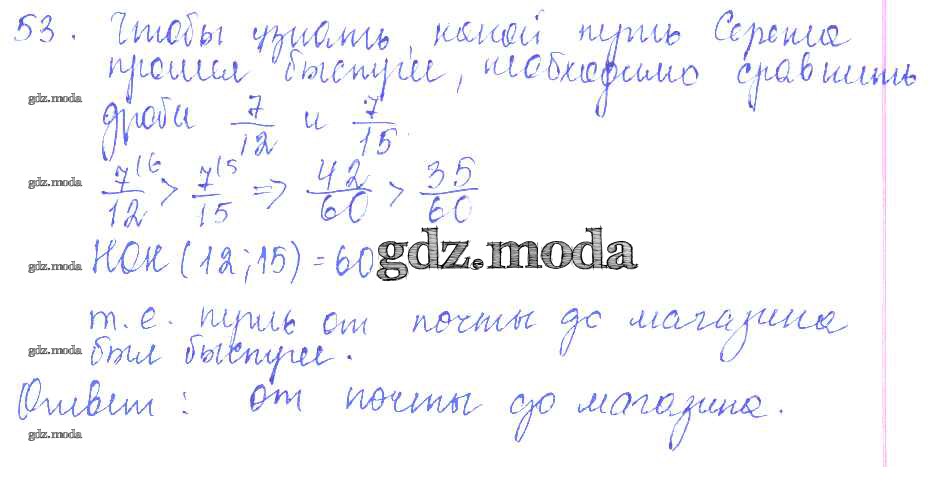 53. Чтобы узнать, какой путь Сережа
прошел быстрее, необходимо сравнить
gdz.moda
дроби 7/12 и 7/15.
gdz.moda
7(6/12 > 7(5/15 => 42/60 > 35/60
gdz.moda
НОК (12;15) = 60
gdz.moda
т. е. путь от почты до магазина
gdz.moda
был быстрее.
Ответ: от почты до магазина.
gdz.moda